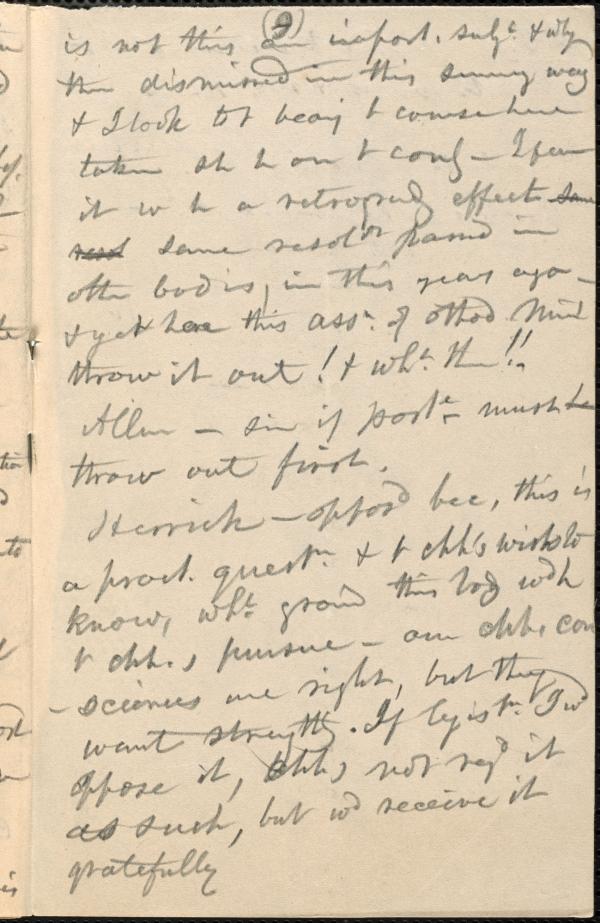 (9)
is not this an import. subj.t & why
then dismissed in this summy way
& I look to t being t course here
taken sh h on t cong – I fear
it w h a retrograd effect same
same resolns passed in
other bodies, in this years ago –
& yet here this assn. of othod Min
throw it out! & wht. then!!
Allen – sin if post must be
throw out first.
Herrick – opposd bec, this is
a pract. questn & t chhs wish to
know, wht ground this body wdh
t chh.s pursue – our chhs. con
– sciences are right, but they
want strength. If legistn I wd
oppose it, chhs not regd it
as such, but wd receive it
gratefully